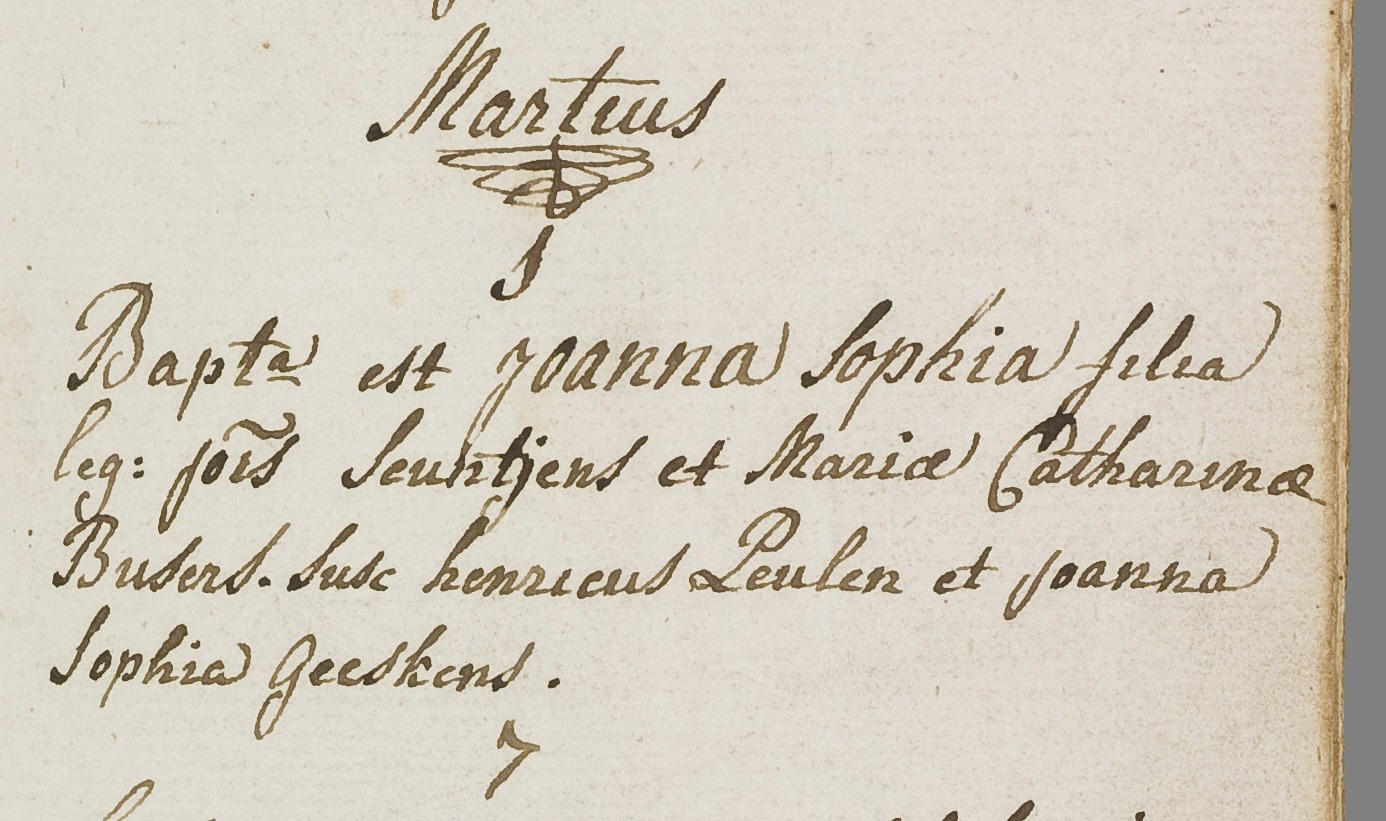 Martius
Bapta est Joanna Sophia filia
leg: jois Seuntjens et Mariæ Catharinæ
Busers. Susc henricus Peulen et joanna
Sophia Geeskens.
7